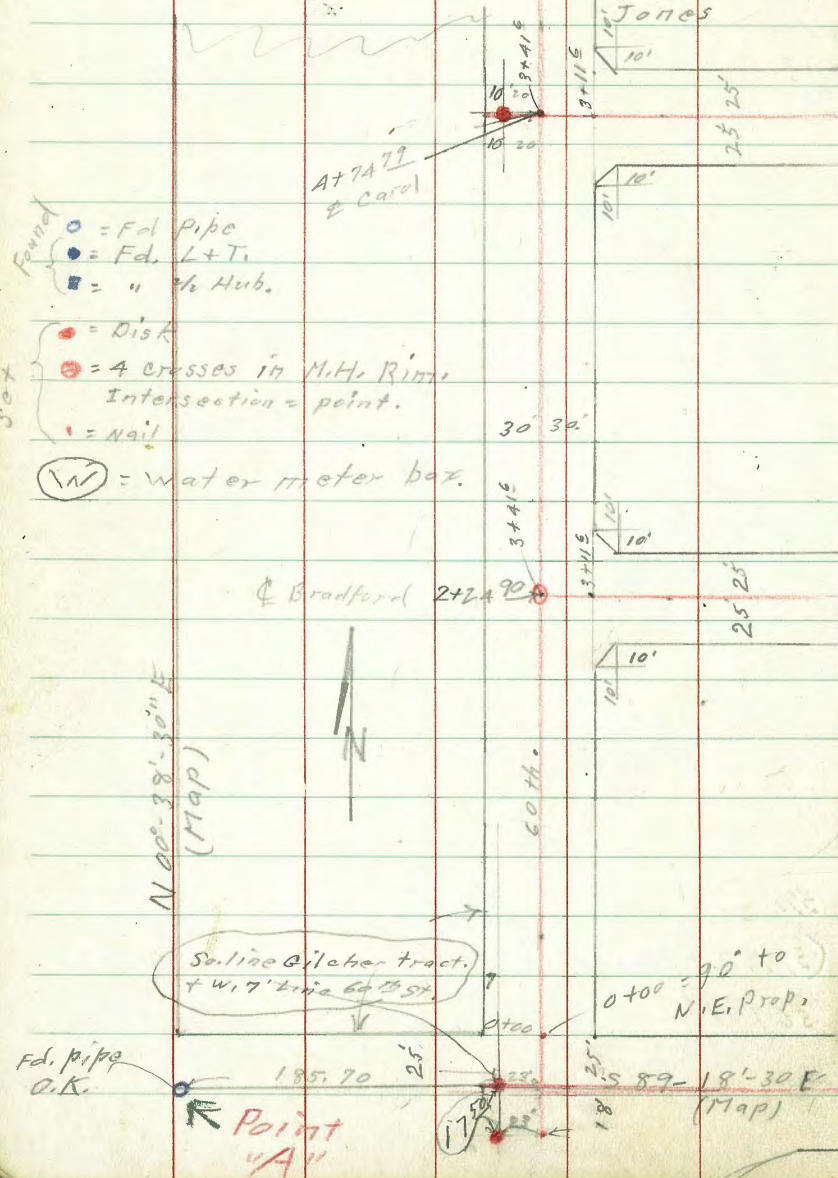 Jones
10'
10'
3+41⁶
3+11⁶
10' 20
10 20
25' 25'
4+74⁷⁹
℄ Carol
10'
10'
Found
= Fd Pipe
= Fd. L+T.
= " Hub.
Set
= Disk
= 4 crosses in M.H. Rim.
Intersection = point.
= Nail
W = Water meter box.
30' 30'
3+41⁶
3+11⁶
10'
10'
℄ Bradford 2+24⁹⁰
25' 25'
10'
10'
N
N 00°-38'-30" E
(Map)
60 th.
So. line Gilcher tract.
+ W. 7' line 60th St.
7
0+00
0+00 = 90° to
N.E. Prop.
Fd. pipe
O.K.
185.70
25'
23'
25'
S 89-18'-30 E
(Map)
Point
"A"
17⁵⁰
18'